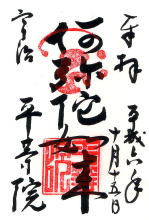 奉拝
平成六年
十月十五日
阿弥陀如来
宇治
平等院